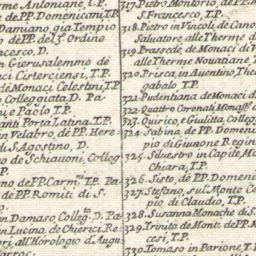 me Antoniane, T.P.
de PP. Domenicani, T.P.
Damiano, gia Tempio
de PP. del 3° Ordine
ncesco, D.
in Gierusalemme de
ci Cistercensi, T.P.
de Monaci Celestini, T.P.
Collegiata D. Pa
e Paolo T.P.
anti Porta Latina, T.P.
in Velabro, de PP. Here
di S. Agostino, D.
de Schiavoni, Colleg
T.P.
no de PP. Carm.ni T.P. Pa
de PP. Romiti di S.
o
in Damaso, Colleg. D. Pa
in Lucina, de Chierici Re
ri, all'Horologio d'Augu
317. Pietro Montorio, de PP.
S. Francesco, T.P.
318. Pietro in Vincoli, de Cano
Salvatore alle Therme
319. Prassede, de Monaci di V
alle Therme Nouatiane,
320. Prisca, in Auentino, The
gabalo T.P.
321. Pudentiana de Monaci d
322. Quattro Coronati Monast.
323. Quirico, e Giulitta, Colleg
324. Sabina, de PP. Domeni
pio di Giunone Regin
325. Siluestro in Capite, Mo
Chiara, T.P.
326. Sisto, de PP. Domeni
327. Stefano, sul Monte C
pio di Claudio, T.P.
328. Susanna Monache di S.
329. Trinita de Monti de PP. M
cesi, T.P.
330. Tomaso in Parione T.P.